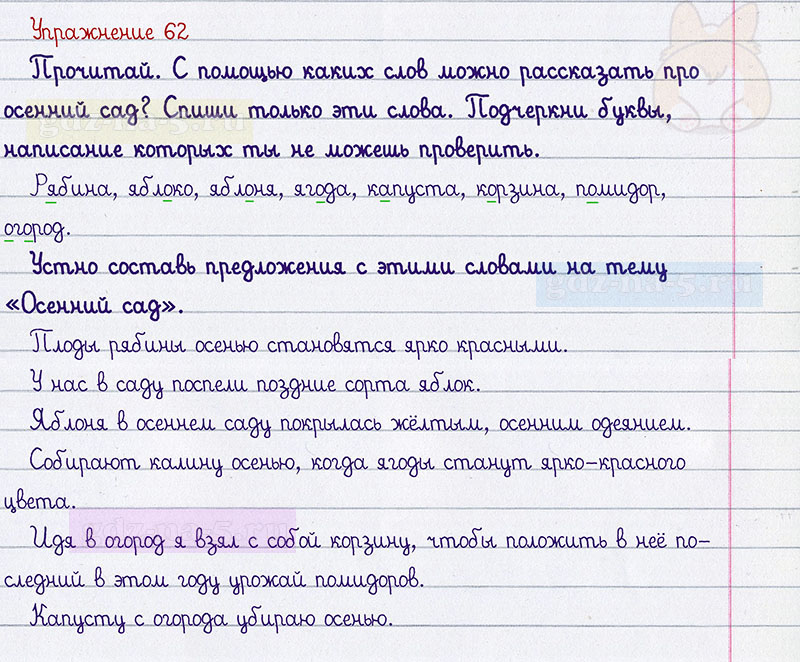 Упражнение 62
Прочитай. С помощью каких слов можно рассказать про
осенний сад? Спиши только эти слова. Подчеркни буквы,
gdz-na-5.ru
написание которых ты не можешь проверить.
Рябина, яблоко, яблоня, ягода, капуста, корзина, помидор,
огород.
Устно составь предложения с этими словами на тему
gdz-na-5.ru
«Осенний сад».
Плоды рябины осенью становятся ярко красными.
У нас в саду поспели поздние сорта яблок.
Яблоня в осеннем саду покрылась жёлтым, осенним одеянием.
Собирают калину осенью, когда ягоды станут ярко-красного
цвета.
gdz-na-5.ru
Идя в огород я взял с собой корзину, чтобы положить в неё по-
следний в этом году урожай помидоров.
Капусту с огорода убираю осенью.